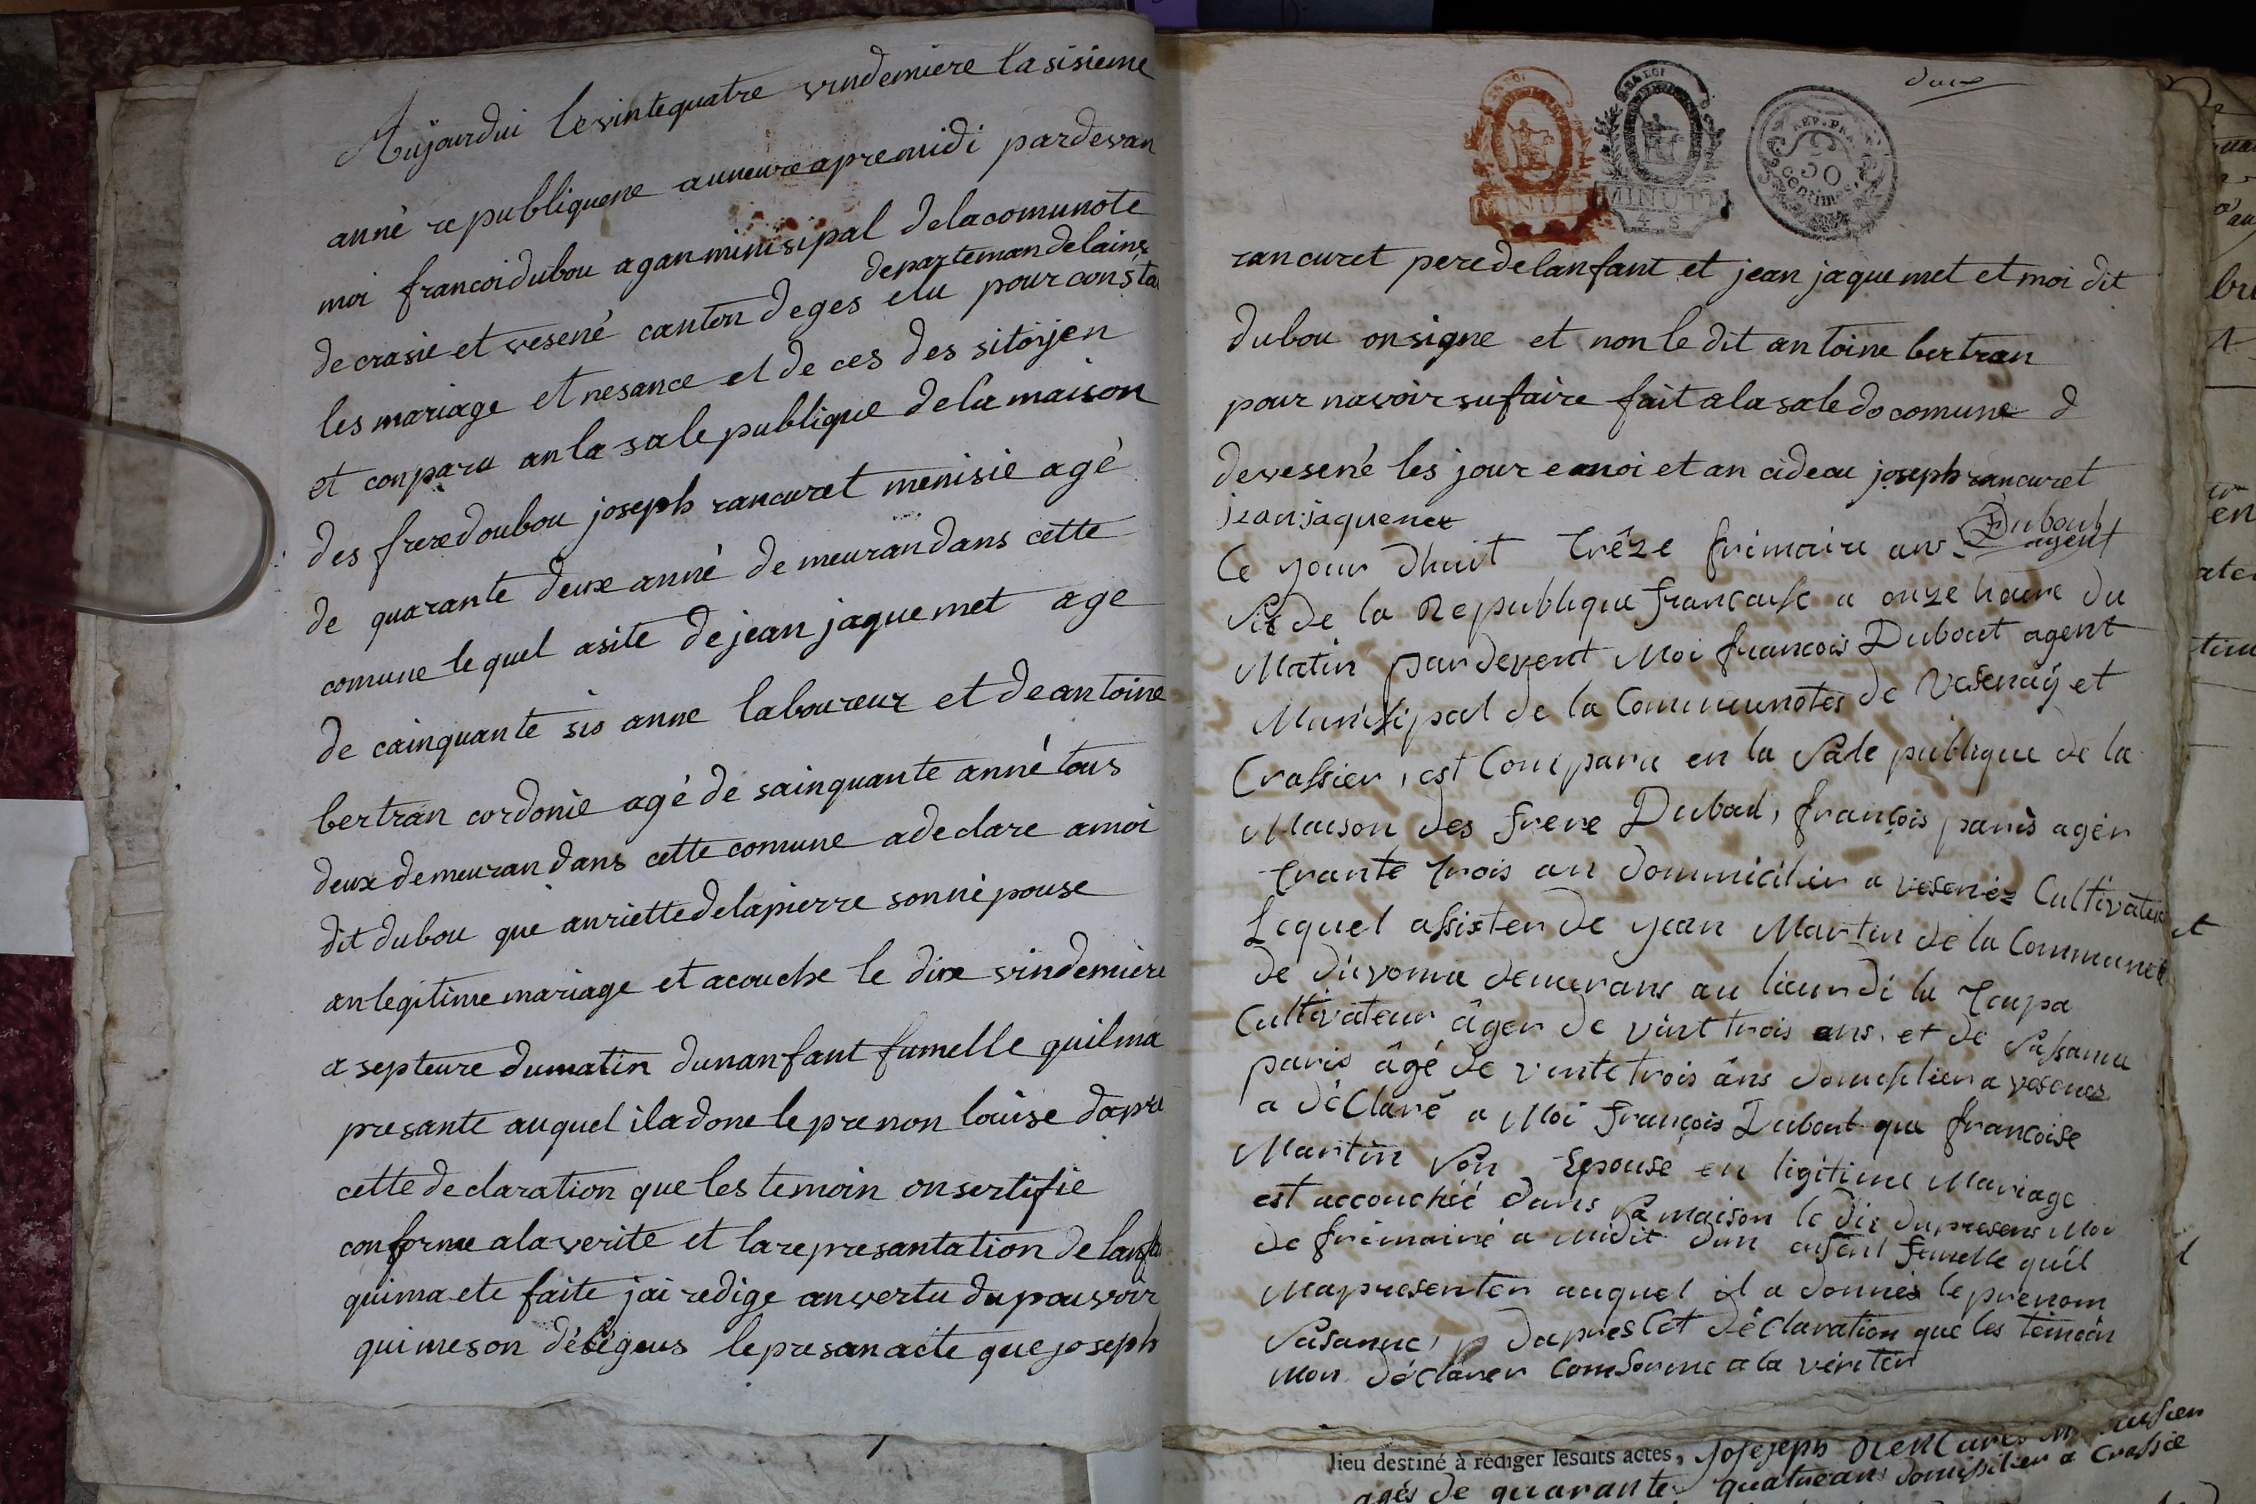 Aujourdui le vintequatre vindemiere la sisieme
anné republiquene auneure apremidi pardevan
moi francoi dubou agan minisipal de la comunote
departeman de lains
de crasie et vesené canton de ges elu pour consta
les mariage et nesance et de ces des sitoyen
et conparu an la sale publique de la maison
des frere doubou joseph rancuret menisie agé
de quarante deux anné demeuran dans cette
comune lequel asite de jean jaquemet age
de cainquante sis anne laboureur et de antoine
bertran cordonie agé de sainquante anné tous
deux demeuran dans cette comune a declare a moi
dit dubou que anriette delapierre sonnépouse
an legitime mariage et acouche le dixe vindemiere
a septeure du matin dunanfant fumelle quil ma
presante auquel il a done le prenon louise dapre
cette declaration que les temoin on sertifie
conforme a la verite et la represantation de lanfan
qui ma ete faite jai redige an vertu du pouvoir
qui me son délégeus le presan acte que joseph
deux
LA LOI
LA LOI
MINUTE
MINUTE
REP. FRA.
50
centimes
rancuret pere de lanfant et jean jaquemet et moi dit
dubou on signe et non le dit antoine bertran
pour navoir su faire fait a la sale do comune d
de vesené les jour e moi et an cideau joseph rancuret
jean jaquemet
Dubout
agent
Ce jour dhuit trêze frimaire an
Sis de la Republique francaise a onze heure du
Matin pardevent Moi francois Dubout agent
Munisipal de la Communotes de Vesenaÿ et
Crassier, est Comparu en la Sale publique de la
Maison des frere Dubout, françois paris agér
trante trois an dommicilier a vesenéz Cultivateur
Lequel assister de jean Martin de la Commune
de divonne demurans au lieu di la
Cultivateur âger de vint trois ans. et de Susanne
paris âgé de vinte trois âns domesilier a vesenes
a déClaré a Moi françois Dubout que francoise
Martin Son Epouse en ligitime Mariage
est accouchéé dans sa maison le dix du presens Moi
de frimaire a midit dun enfant fumelle quil
Mapresenter auquel il a donnés le prenom
Susanne, dapres Cet déClaration que les temoin
Mon déClarer Comforme a la vériter
lieu destiné à rédiger lesdits actes, Josejeph
agés de quarante quatre ans domissilier a Crassie